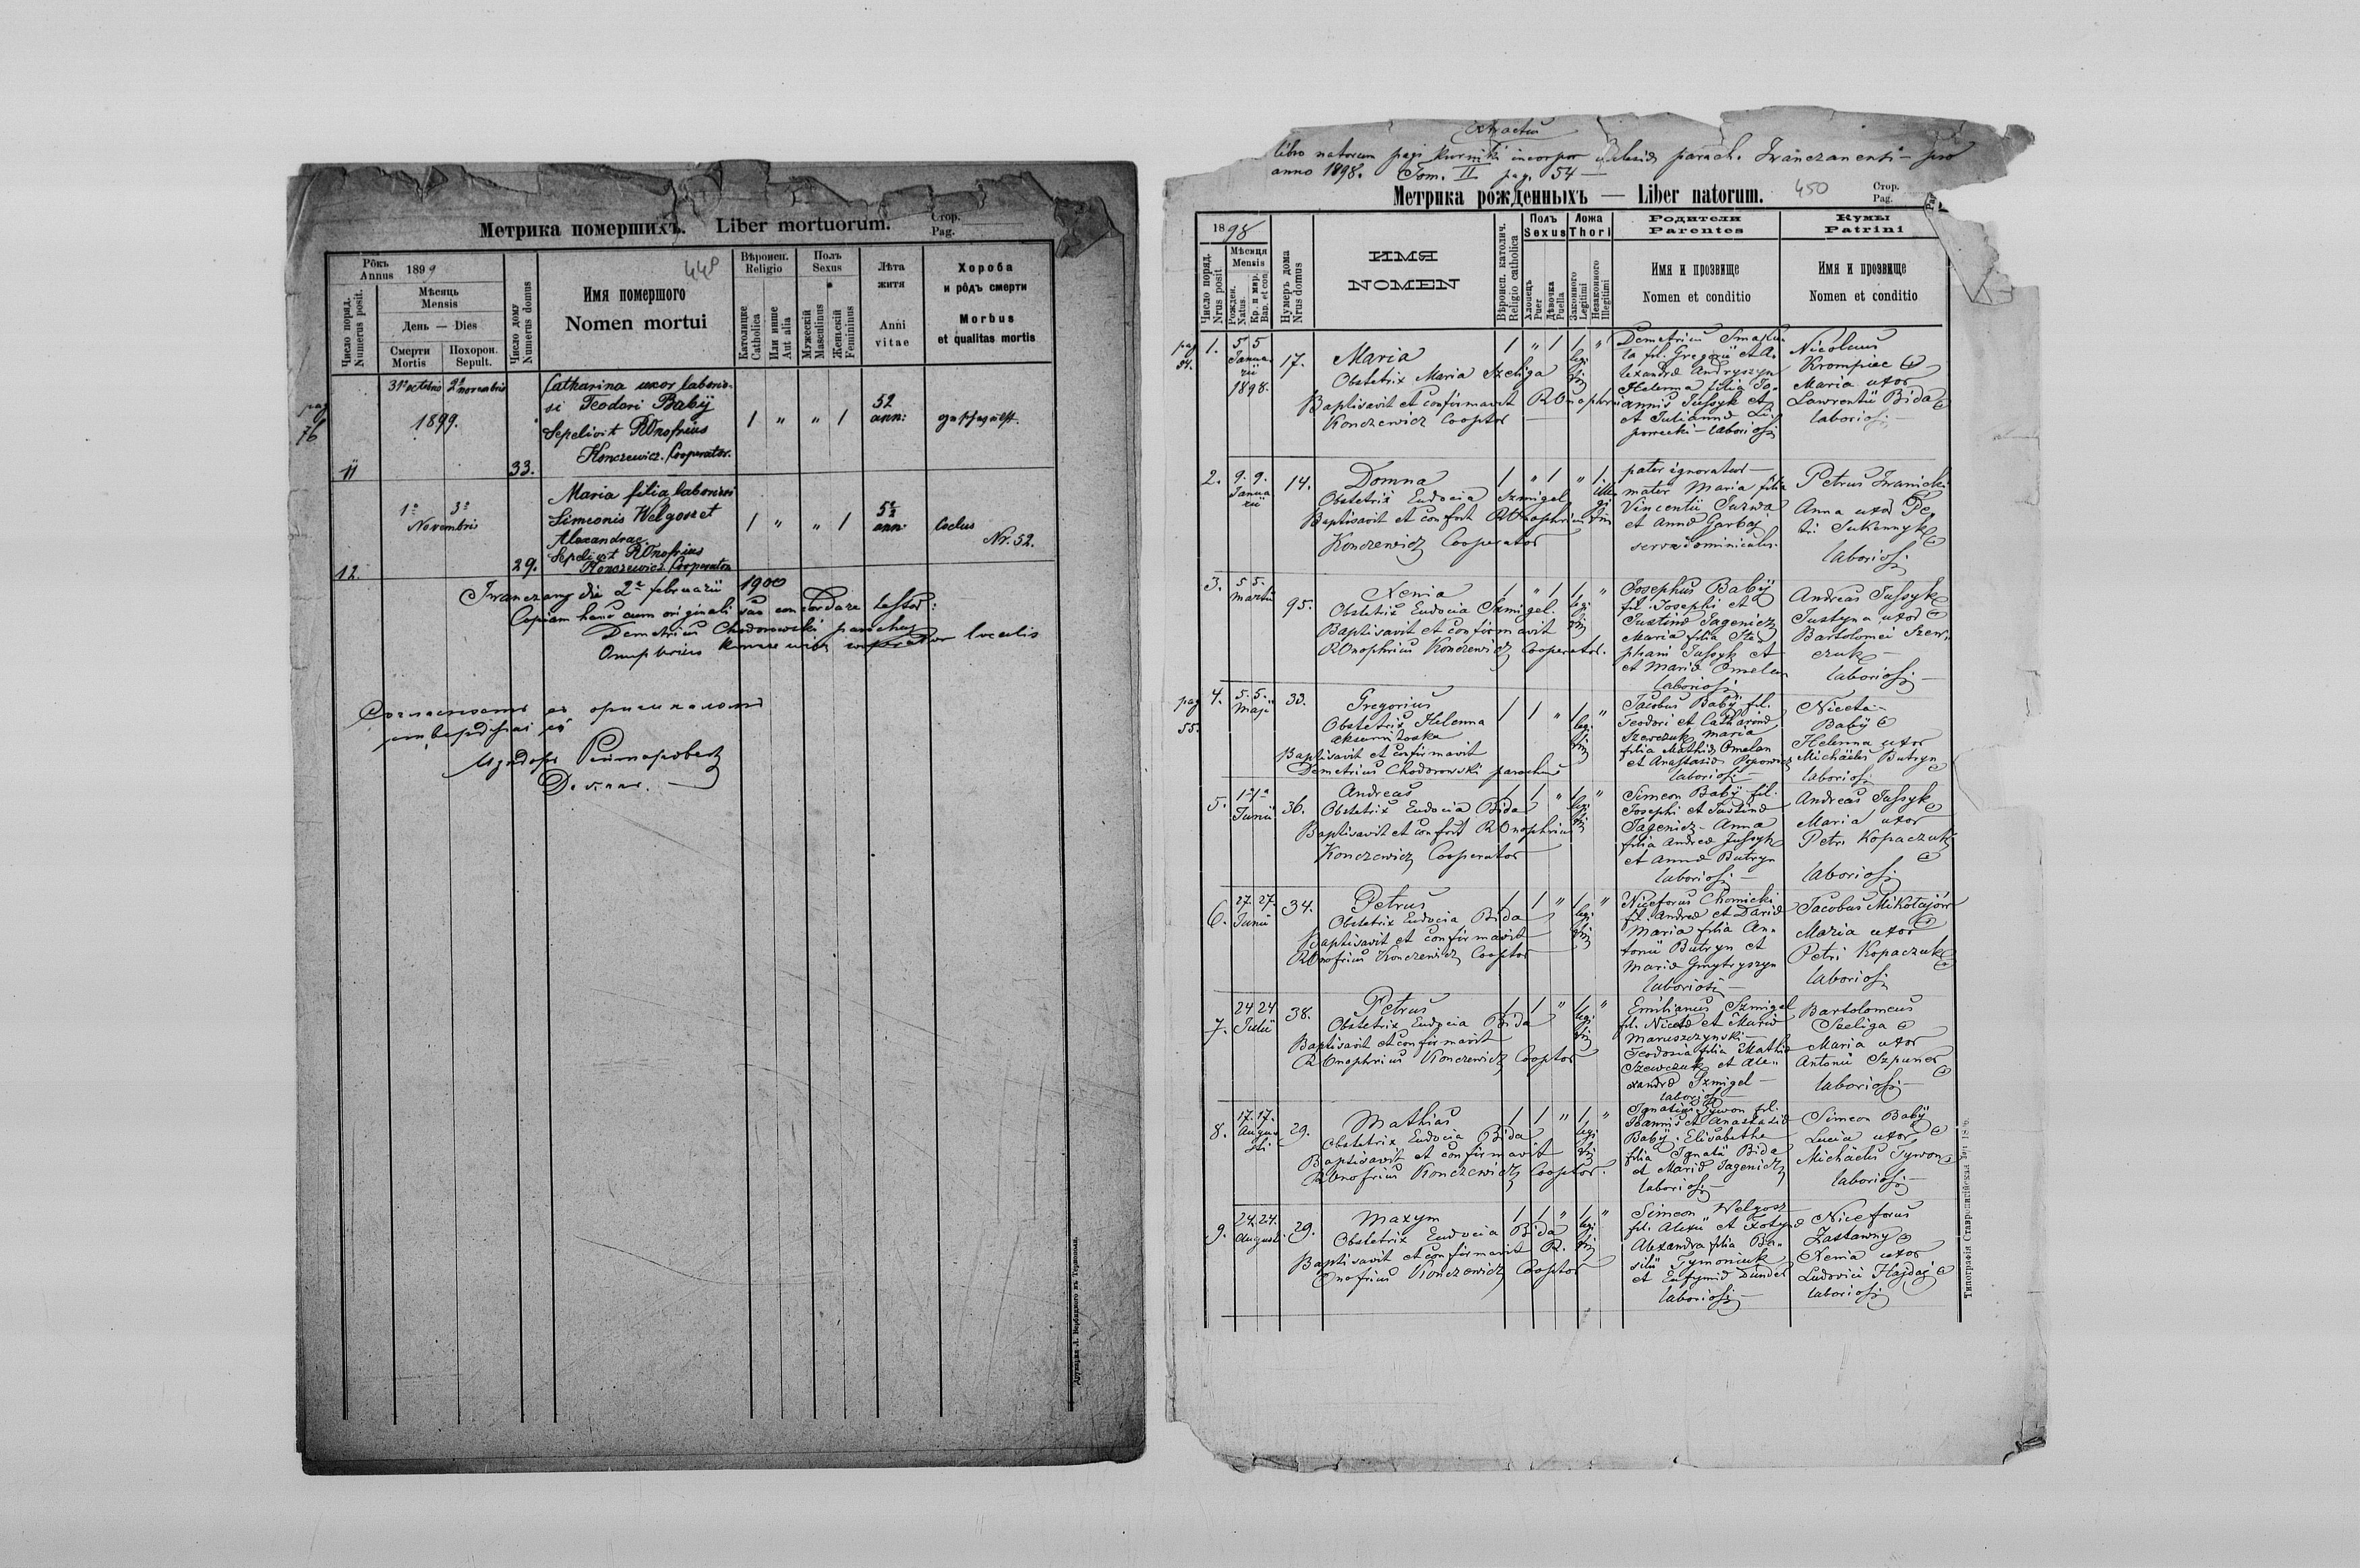 Метрика помершихъ. Liber mortuorum.
Стор.
Pag.
448
Рôкъ
Annus 1899
Число поряд.
Numerus posit.
Мѣсяць
Mensis
День — Dies
Смерти
Mortis
Похорон.
Sepult.
Число дому
Numerus domus
Имя помершого
Nomen mortui
Вѣроисп.
Religio
Католицке
Catholica
Или инше
Aut alia
Полъ
Sexus
Мужескій
Masculinus
Женьскій
Femininus
Лѣта
житя
Anni
vitae
Хороба
и рôдъ смерти
Morbus
et qualitas mortis
pag
76
11
31a octobris 2a novembris
1899.
33.
Catharina uxor laborio-
si Teodori Babÿ
Sepelivit R Onofrius
Konczewicz. Cooperator.
1 " " 1
52
ann:
12
1a 3a
Novembris
29.
Maria filia laboriosi
Simeonis Welgosz et
Alexandrae.
Sepelivit R Onofrius
Konczewicz Cooperator
1 " " 1
ann:
Nr. 52.
Iwanczany die 2a februarii 1900
Copiam hanc cum originali suo concordare testor:
Demetrius Chodorowski parochus
Onuphrius Konczewicz cooperator localis
Деканъ.
Друкарня Л. Вербицкого въ Терноnоли.
Extractus
libro natorum pagi Kurniki incorpor Ecclesiae paroch. Iwanczanensi — pro
anno 1898. Tom. II pag. 54 —
Метрика рожденныхъ — Liber natorum.
450
Стор.
Pag.
1898
Число поряд.
Nrus posit
Мѣсяця
Mensis
Рожден.
Natus.
Кр. и мир.
Bap. et con
Нумеръ дома
Nrus domus
ИМЯ
NOMEN
Вѣроисп. католич.
Religio catholica
Полъ
Sexus
Хлопецъ
Puer
Дѣвочка
Puella
Ложа
Thori
Законного
Legitimi
Незаконного
Illegitimi
Родители
Parentes
Имя и прозвище
Nomen et conditio
Кумы
Patrini
Имя и прозвище
Nomen et conditio
pag
54.
1. 5 5
Janua-
rii
1898.
17.
Maria
Obstetrix Maria Szeliga
Baptisavit et confirmavit R Onophrius
Konczewicz Cooptor
1 " 1 1 "
legi
tim
la fil. Gregorii et A-
lexandrae Andryszyn
Helenna filia Jo-
annis Jussyk et
et Juliannae Li-
powecki — laboriosi
Nicolaus
Krompiec
Maria uxor
Lawrentii Bida
laboriosi
2. 9. 9.
Janua
rii
14.
Domna
Obstetrix Eudocia Szmigel
Baptisavit et confort R Onophrius
Konczewicz Cooperator
1 " 1 " 1.
pater ignoratur —
mater Maria filia
Vincentii Jurda
et Annae Garbaz
Petrus Iwanicki
Anna uxor Pe-
tri Sukennyk
laboriosi
3. 5. 5.
Martii
95.
Xenia
Obstetrix Eudocia Szmigel.
Baptisavit et confirmavit
R Onophrius Konczewicz Cooperator.
1 " 1 1 "
legi
tim
Josephus Babÿ
fil. Josephi et
Justinae Jagenicz
Maria filia Ste-
phani Jussyk et
et Mariae Omelan
laboriosi
Andreas Jussyk
Justyna uxor
Bartolomei Szew-
czuk —
laboriosi —
pag
55.
4. 5. 5.
Maji
33.
Gregorius
Obstetrix Helenna
Baptisavit et confirmavit
Demetrius Chodorowski parochus
1 1 " 1 "
legi
tim
Jacobus Babÿ fil.
Teodori et Catharinae
Szewczuk Maria
filia Mathiae Omelan
et Anastasiae Popowicz
laboriosi —
Niceta —
Babÿ
Helenna uxor
Michaelis Butryn
laboriosi
5. 1a 1a
Junii
36.
Andreas
Obstetrix Eudocia Bida
Baptisavit et confort R Onophrius
Konczewicz Cooperator
1 1 " 1 "
legi
tim
Simeon Babÿ fil.
Josephi et Justinae
Jagenicz — Anna
filia Andreae Jussyk
et Annae Butryn
laboriosi —
Andreas Jussyk
Maria uxor
Petri Kopaczuk
laboriosi
6. 27. 27.
Junii
34.
Petrus
Obstetrix Eudocia Bida
Baptisavit et confirmavit
R Onofrius Konczewicz Cooptor
1 1 " 1 "
legi
tim
Niceforus Chomicki
fil. Andreae et Dariae
Maria filia An-
tonii Butryn et
Mariae Gmytryszyn
laboriosi —
Jacobus Mikołajów
Maria uxor
Petri Kopaczuk
laboriosi
7. 24 24
Julii
38.
Petrus
Obstetrix Eudocia Bida
Baptisavit et confirmavit
R Onophrius Konczewicz Cooptor
1 1 " 1 "
legi
tim
Emilianus Szmigel
fil. Nicetae et Mariae
Maruszczynski —
Teodosia filia Mathiae
Szewczuk et Ale-
xandrae Szmigel —
laboriosi
Bartolomeus
Szeliga
Maria uxor
Antonii Szpunar
laboriosi —
8. 17. 17.
Augu-
sti
29.
Mathias
Obstetrix Eudocia Bida
Baptisavit et confirmavit
R Onofrius Konczewicz Cooptor.
1 1 " 1 "
legi
tim
Ignatius Tywon fil.
Joannis et Anastasiae
Babÿ. Elisabetha
filia Ignatii Bida
et Mariae Jagenicz
laboriosi —
Simeon Babÿ
Lucia uxor
Michaelis Tywon
laboriosi —
9. 24. 24.
Augusti
29.
Maxym
Obstetrix Eudocia Bida
Baptisavit et confirmavit R.
Onofrius Konczewicz Cooptor
1 1 " 1 "
legi
tim
Simeon Welgosz
fil. Alexii et Fotynae
Alexandra filia Ba-
silii Tymoniuk
et Eufymiae Dunder
laboriosi —
Niceforus
Zastawny
Xenia uxor
Ludovici Hajdaj
laboriosi